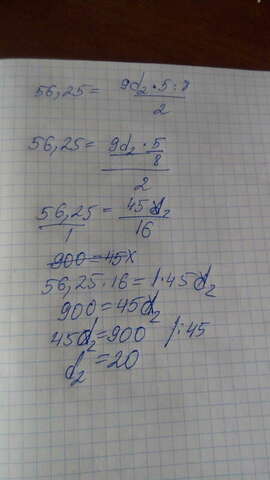 56,25 = 9d₂ · 5:8 / 2
56,25 = 9d₂ · 5/8 / 2
56,25 / 1 = 45d₂ / 16
900 = 45x
56,25 · 16 = 1 · 45d₂
900 = 45d₂
45d₂ = 900 |:45
d₂ = 20